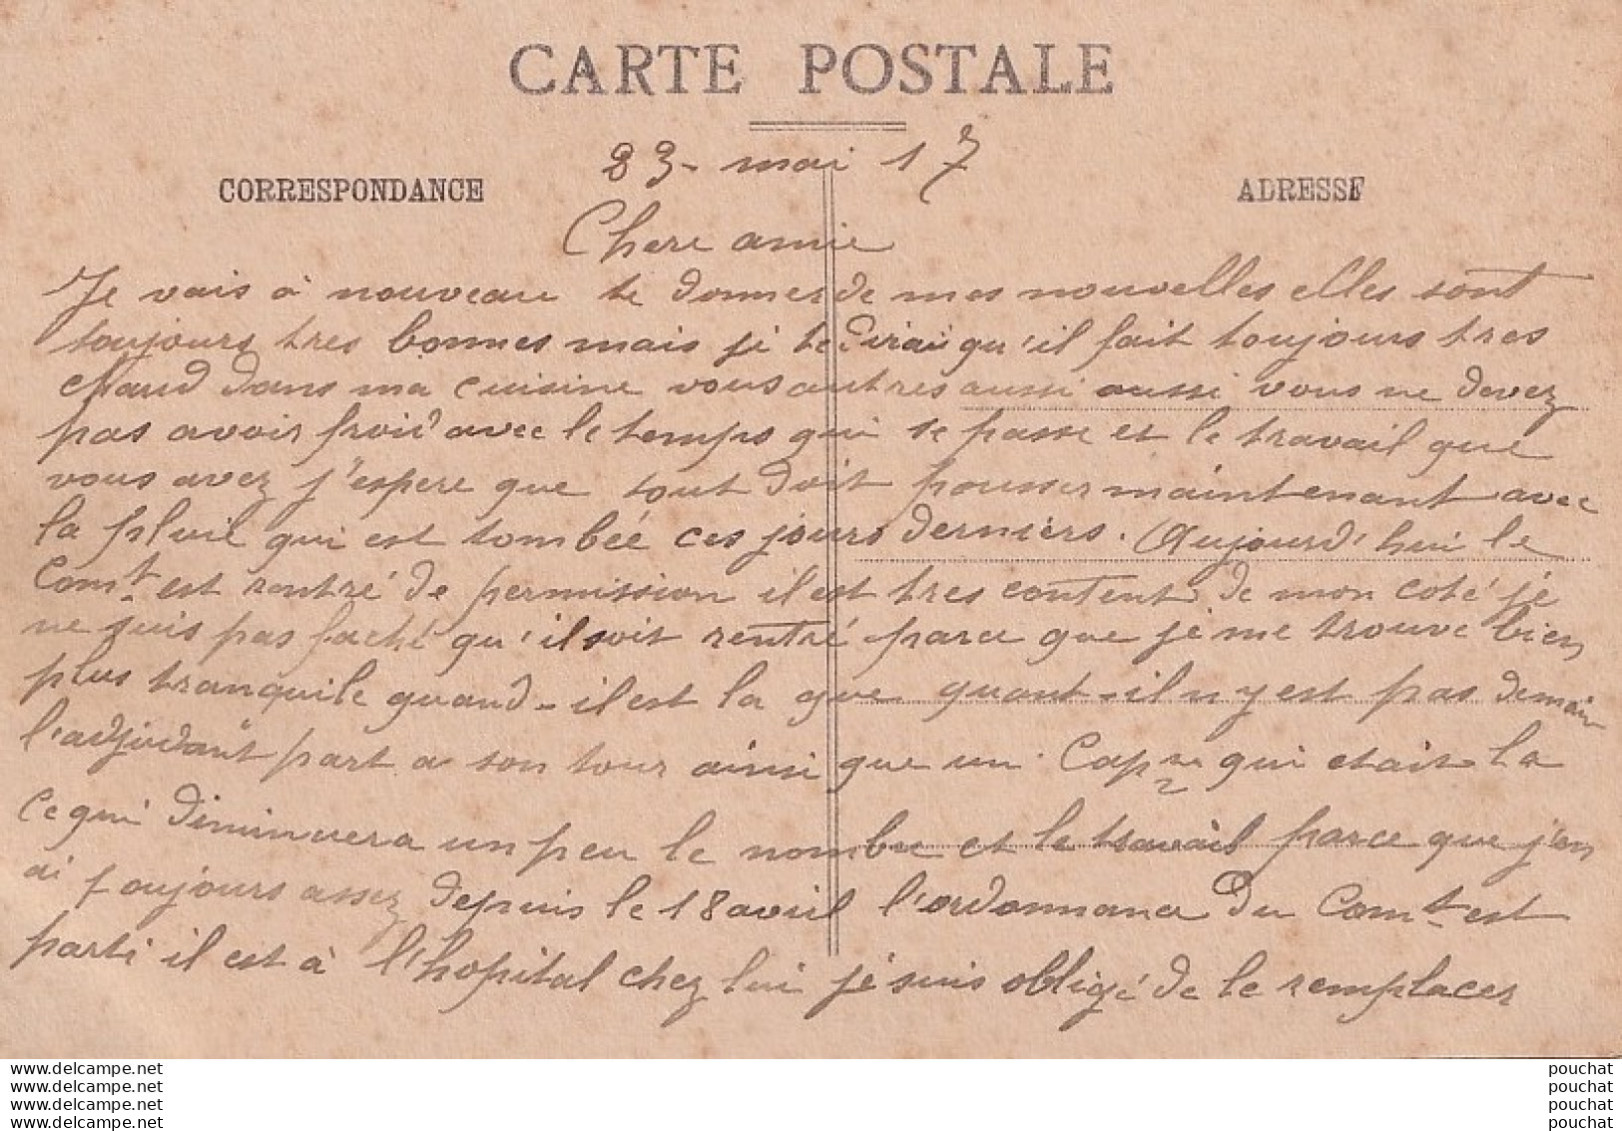 CARTE POSTALE
23- mai 17
CORRESPONDANCE
ADRESSE
Chere amie
Je vais à nouveau te donner de mes nouvelles elles sont
toujours tres bonnes mais je te dirai qu'il fait toujours tres
chaud dans ma cuisine vous autres aussi aussi vous ne devez
pas avoir froid avec le temps qui se passe et le travail que
vous avez j'espere que tout doit pousser maintenant avec
la pluil qui est tombéé ces jours derniers. Aujourd'hui le
Comt est rentré de permission il est tres content de mon coté je
ne suis pas faché qu'il soit rentré parce que je me trouve bien
plus tranquile quand-il est la que quant-il n'y est pas demain
l'adjudant part a son tour ainsi que un Cap qui etait la
Ce qui diminuera un peu le nombre et le travail parce que j'en
ai toujours assez depuis le 18 avril l'ordonnance du Comt est
parti il est à l'hopital chez lui je suis obligé de le remplacer
www.delcampe.net
www.delcampe.net
www.delcampe.net
www.delcampe.net
pouchat
pouchat
pouchat
pouchat